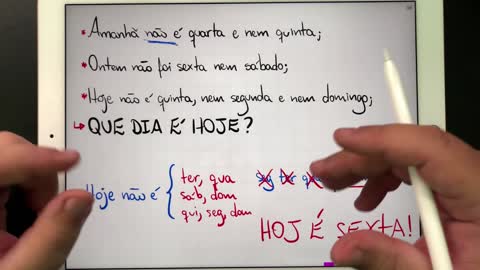 * Amanhã não é quarta e nem quinta;
* Ontem não foi sexta nem sábado;
* Hoje não é quinta, nem segunda e nem domingo;
↳ QUE DIA É HOJE?
Hoje não é { ter, qua
sáb, dom
qui, seg, dom
seg ter
HOJ É SEXTA!